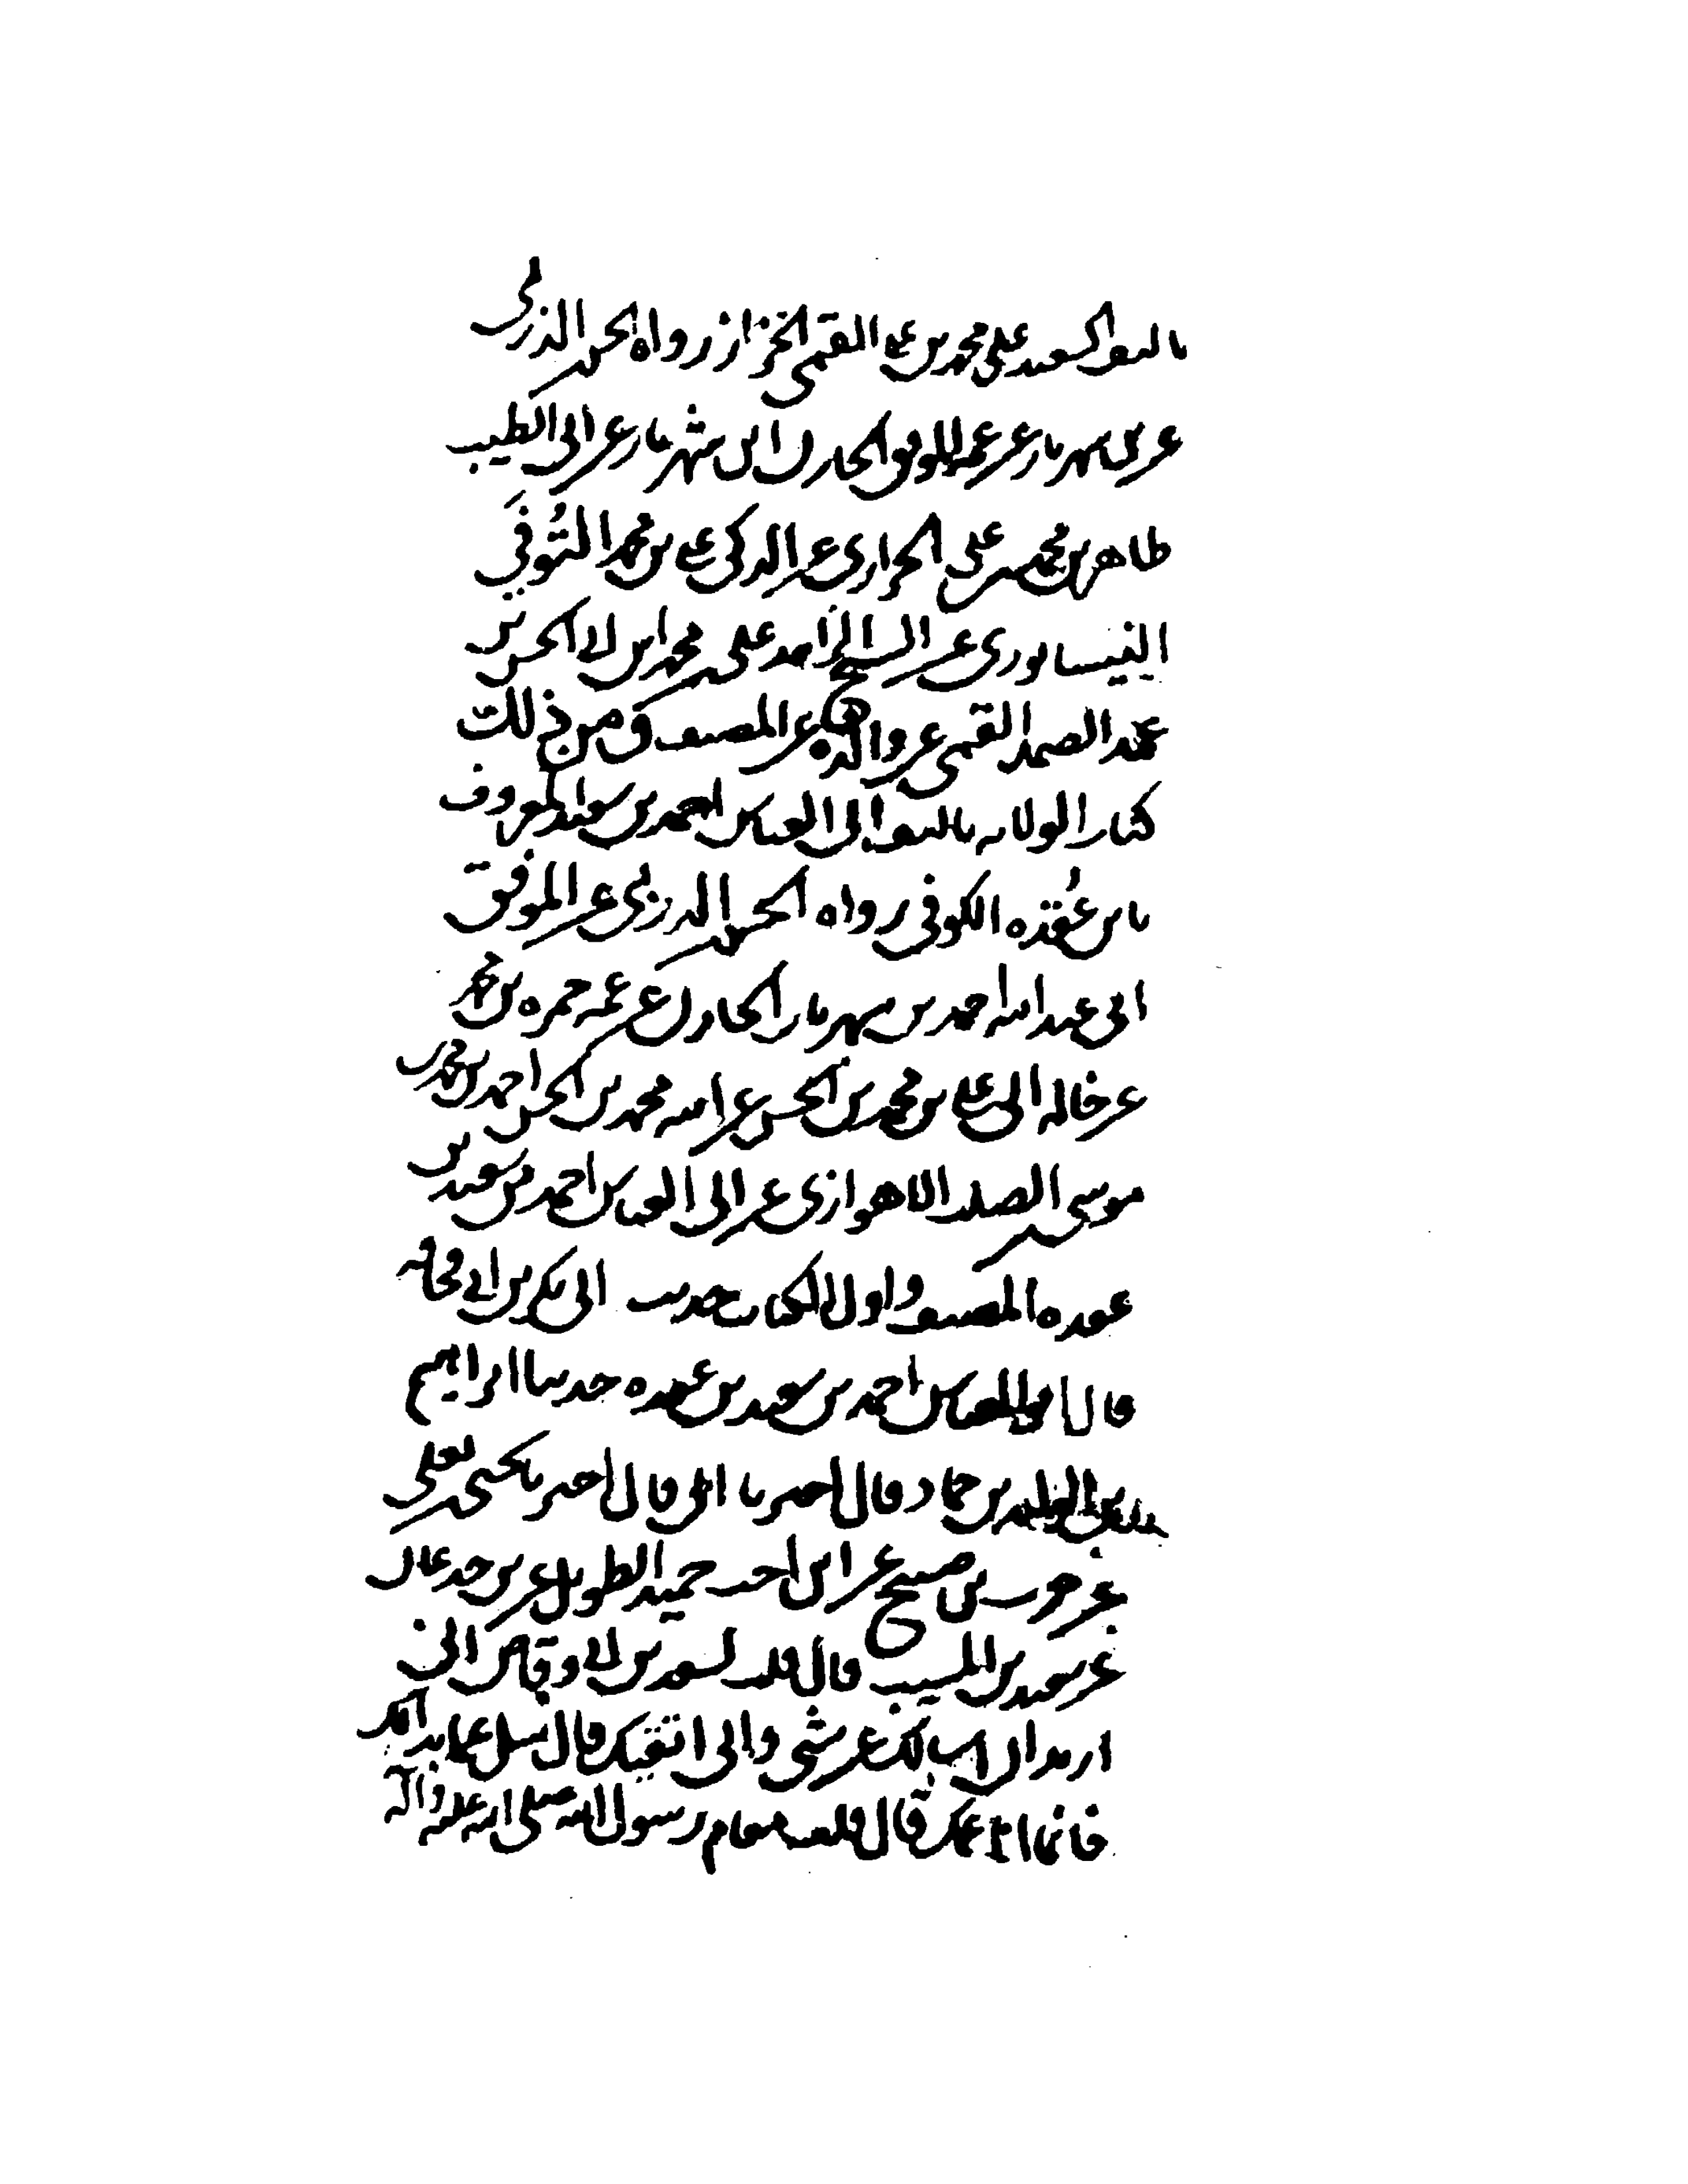 تاليف السعيد علي بن محمد بن علي القمي الخزاز رواه الحسن الدربي
عن بن شهريار عن عمه الموفق الخازن ابن شهريار عن ابي الطيب
طاهر بن محمد بن علي الجواري عن الزكي علي بن محمد التوني
النيسابوري عن الشيخ الزاهد علي بن محمد ابن ابي الحسن بن
عبد الصمد القمي عن والده عن المصنف ومن ذلك
كتاب الولايه تاليف ابي العباس احمد بن سعيد المعروف
بابن عُقده الكوفي رواه الحسن الدربي عن الموفق
ابي عبد الله احمد بن شهريار الخازن عن عمه حمزه بن محمد
عن خاله ابي علي بن محمد بن الحسن عن ابيه محمد بن الحسن احمد بن محمد بن
موسى الصلت الاهوازي عن ابي العباس احمد بن سعيد بن
عقده المصنف واول الكتاب حديث ابي بكر بن ابي قحافه
قال ابو العباس احمد بن سعيد بن عقده حدثنا ابراهيم
بن الوليد بن حماد قال اخبرنا ابي قال اخبرنا يحيى بن يعلى
عن حرب بن صبيح عن ابن اخت حميد الطويل عن بن جدعان
عن سعيد بن المسيب قال قلت لسعد بن ابي وقاص اني
اريد ان اسالك عن شي واني اتقيك قال سل عما بدا لك
فانما انا عمك قال قلت مقام رسول الله صلى الله عليه واله